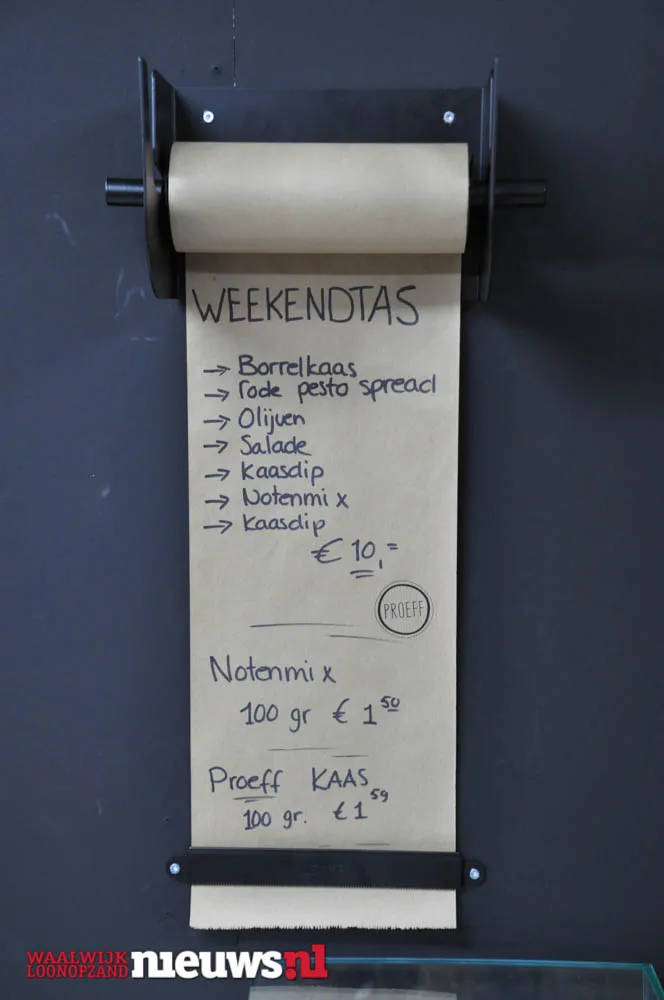 WEEKENDTAS
→ Borrelkaas
→ rode pesto spread
→ Olijven
→ Salade
→ Kaasdip
→ Notenmix
→ Kaasdip
€ 10,=
PROEFF
Notenmix
100 gr € 1 50
Proeff KAAS
100 gr. € 1 59
WAALWIJK
LOONOPZAND
nieuws.nl